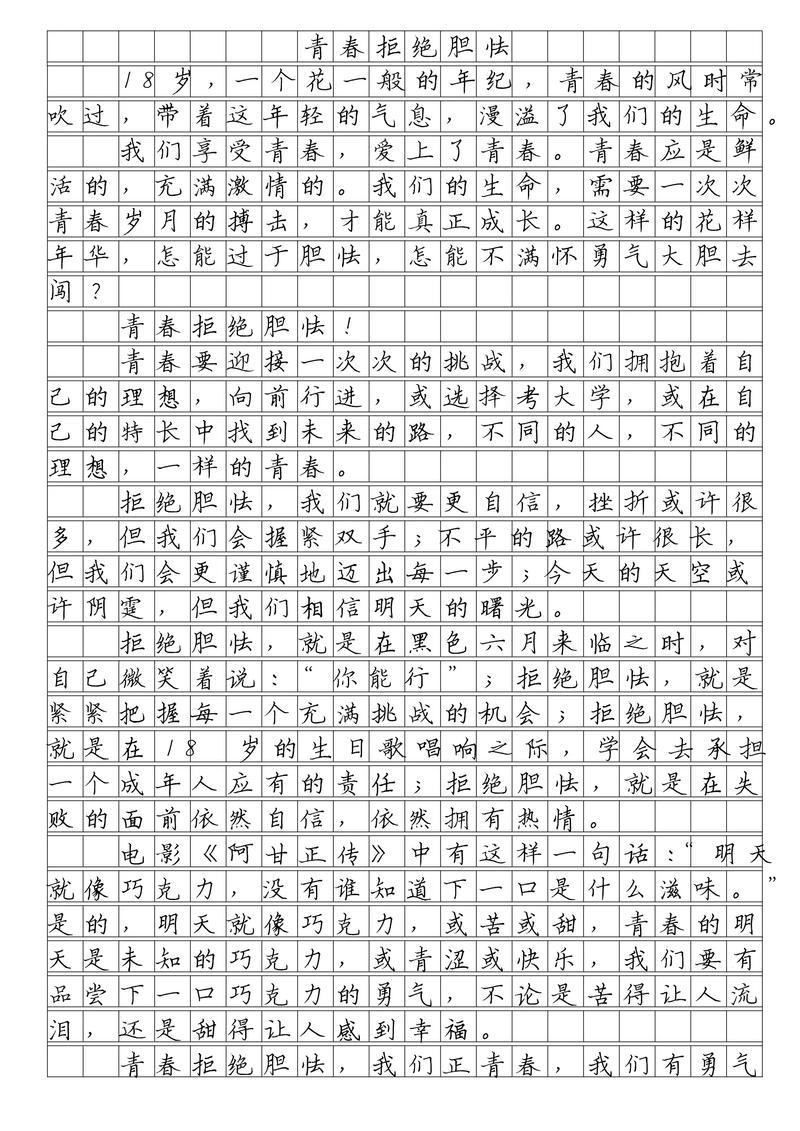 青春拒绝胆怯
18岁，一个花一般的年纪，青春的风时常
吹过，带着这年轻的气息，漫溢了我们的生命。
我们享受青春，爱上了青春。青春应是鲜
活的，充满激情的。我们的生命，需要一次次
青春岁月的搏击，才能真正成长。这样的花样
年华，怎能过于胆怯，怎能不满怀勇气大胆去
闯？
青春拒绝胆怯！
青春要迎接一次次的挑战，我们拥抱着自
己的理想，向前行进，或选择考大学，或在自
己的特长中找到未来的路，不同的人，不同的
理想，一样的青春。
拒绝胆怯，我们就要更自信，挫折或许很
多，但我们会握紧双手；不平的路或许很长，
但我们会更谨慎地迈出每一步；今天的天空或
许阴霆，但我们相信明天的曙光。
拒绝胆怯，就是在黑色六月来临之时，对
自己微笑着说：“你能行”；拒绝胆怯，就是
紧紧把握每一个充满挑战的机会；拒绝胆怯，
就是在18 岁的生日歌唱响之际，学会去承担
一个成年人应有的责任；拒绝胆怯，就是在失
败的面前依然自信，依然拥有热情。
电影《阿甘正传》中有这样一句话：“明天
就像巧克力，没有谁知道下一口是什么滋味。”
是的，明天就像巧克力，或苦或甜，青春的明
天是未知的巧克力，或青涩或快乐，我们要有
品尝下一口巧克力的勇气，不论是苦得让人流
泪，还是甜得让人感到幸福。
青春拒绝胆怯，我们正青春，我们有勇气